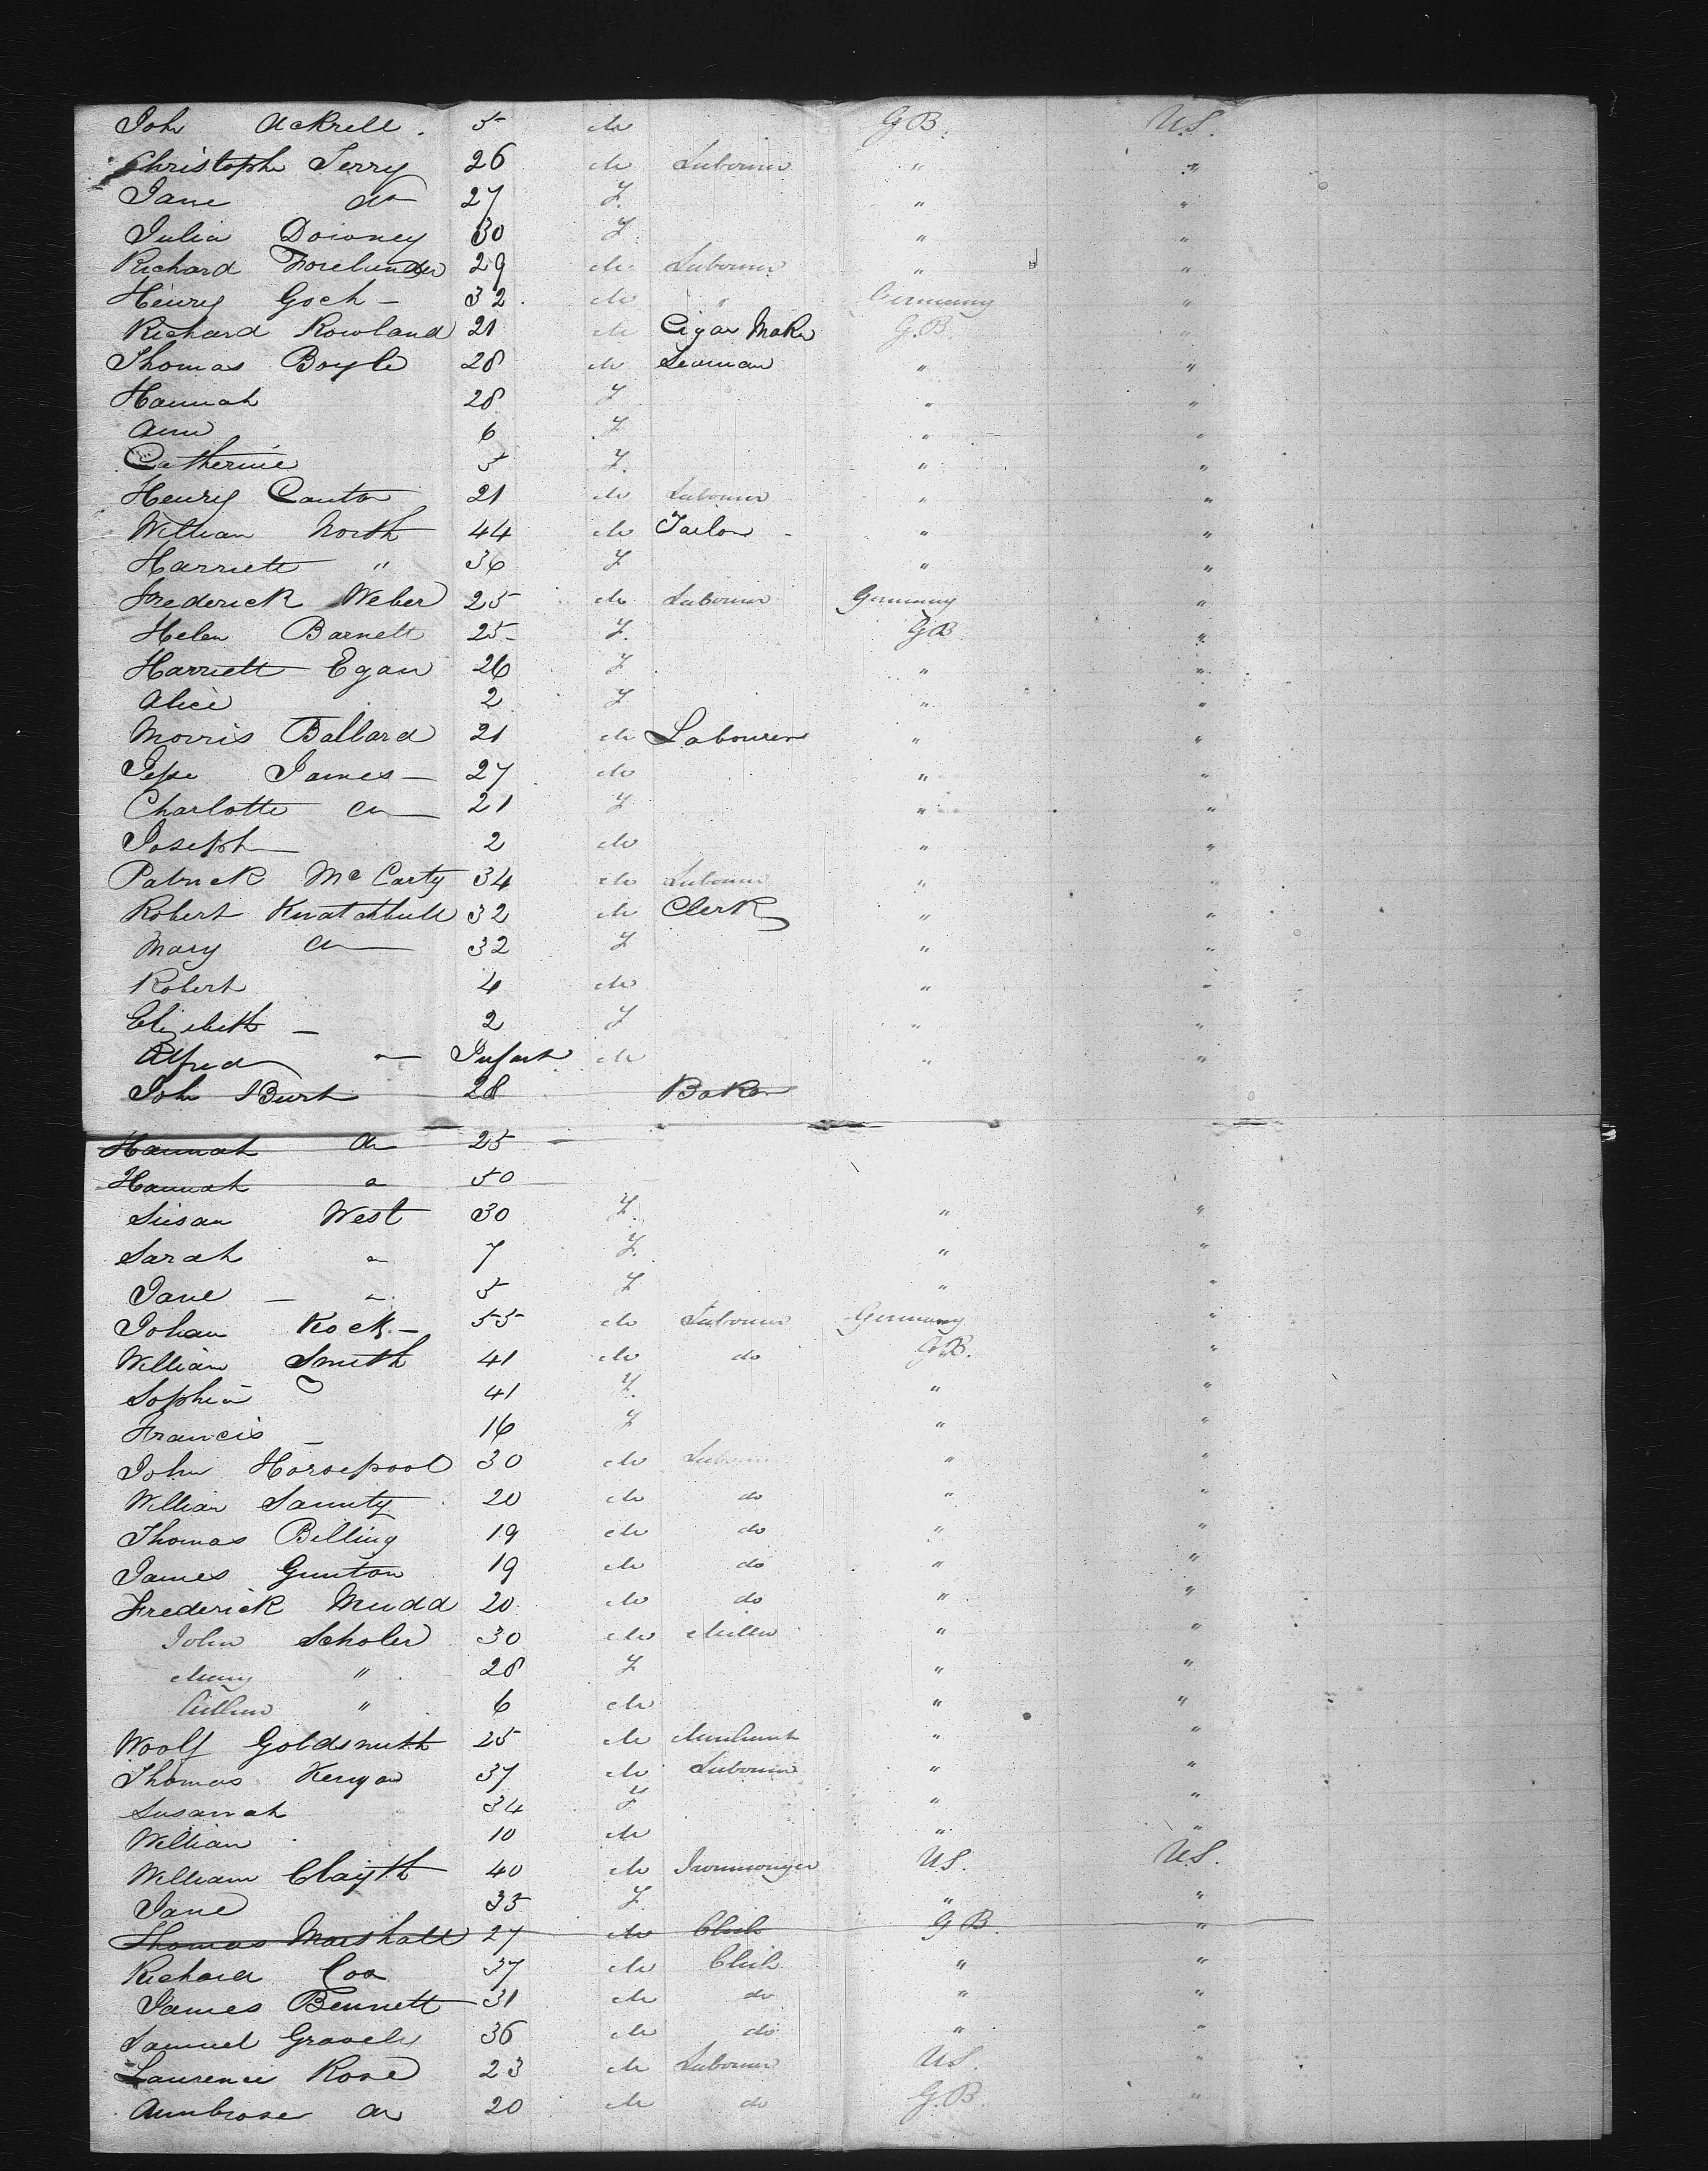 John Ackrell. 5 M GB. U.S.
Christophr Terry 26 M Labourer " "
Jane do 27 F. " "
Julia Downey 30 F. " "
Richard 29 M Labourer " "
Henry Goch - 32. M " Germany "
Richard Rowland 21 M Cigar Maker G.B. "
Thomas Boyle 28 M Seaman " "
Hannah 28 F " "
Ann 6 F " "
Catherine 5 F. " "
Henry Canton 21 M Labourer " "
William North 44 M Tailor - " "
Harriett " 36 F " "
Frederick Weber 25 M Labourer Germany "
Helen Barnett 25 F. GB "
Harriett Egan 26 F " "
Alice 2 F " "
Morris Ballard 21 M Labourer " "
Jesse James - 27 M " "
Charlotte do 21 F " "
Joseph 2 M " "
Patrick McCarty 34 M Labourer " "
Robert Knatchbull 32 M Clerk " "
Mary do 32 F " "
Robert 4 M " "
Elizabeth - 2 F " "
Alfred " Infant M " "
John Burt 28 Baker
Hannah do 25
Hannah " 50
Susan West 30 F. " "
Sarah " 7 F. " "
Jane - " 5 F " "
Johan Kock - 55 M Labourer Germany "
William Smith 41 M do G.B. "
Sophia " 41 F. " "
Francis - 16 F " "
John Horsepool 30 M Labourer " "
William Saunty 20 M do " "
Thomas Billing 19 M do " "
James Gunton 19 M do " "
Frederick Mudd 20 M do " "
John Scholer 30 M Miller " "
Mary " 28 F " "
" 6 M " "
Woolf Goldsmith 25 M Merchant " "
Thomas Kenyon 37 M Labourer " "
Susannah 34 F " "
William 10 M " "
William 40 M Ironmonger U.S. U.S.
Jane 35 F. " "
Thomas Marshall 27 M Clerk G B. "
Richard Cox 37 M Clerk " "
James Bennett 31 M do " "
Samuel 36 M do " "
Laurence Rose 23 M Labourer U.S. "
Ambrose do 20 M do G.B. "